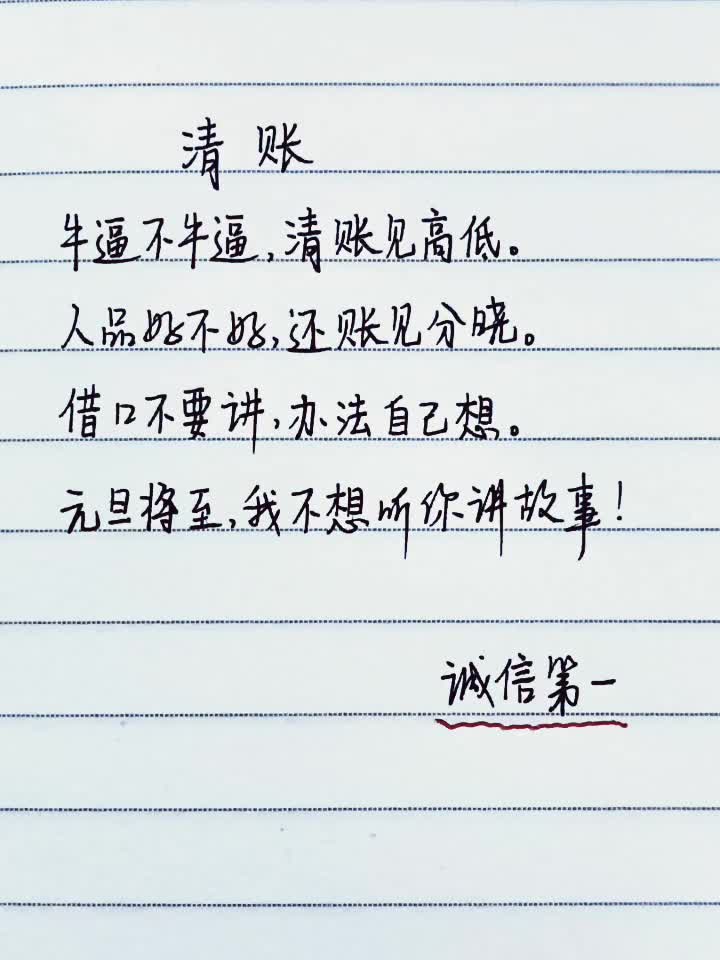 清账
牛逼不牛逼,清账见高低。
人品好不好,还账见分晓。
借口不要讲,办法自己想。
元旦将至,我不想听你讲故事!
诚信第一